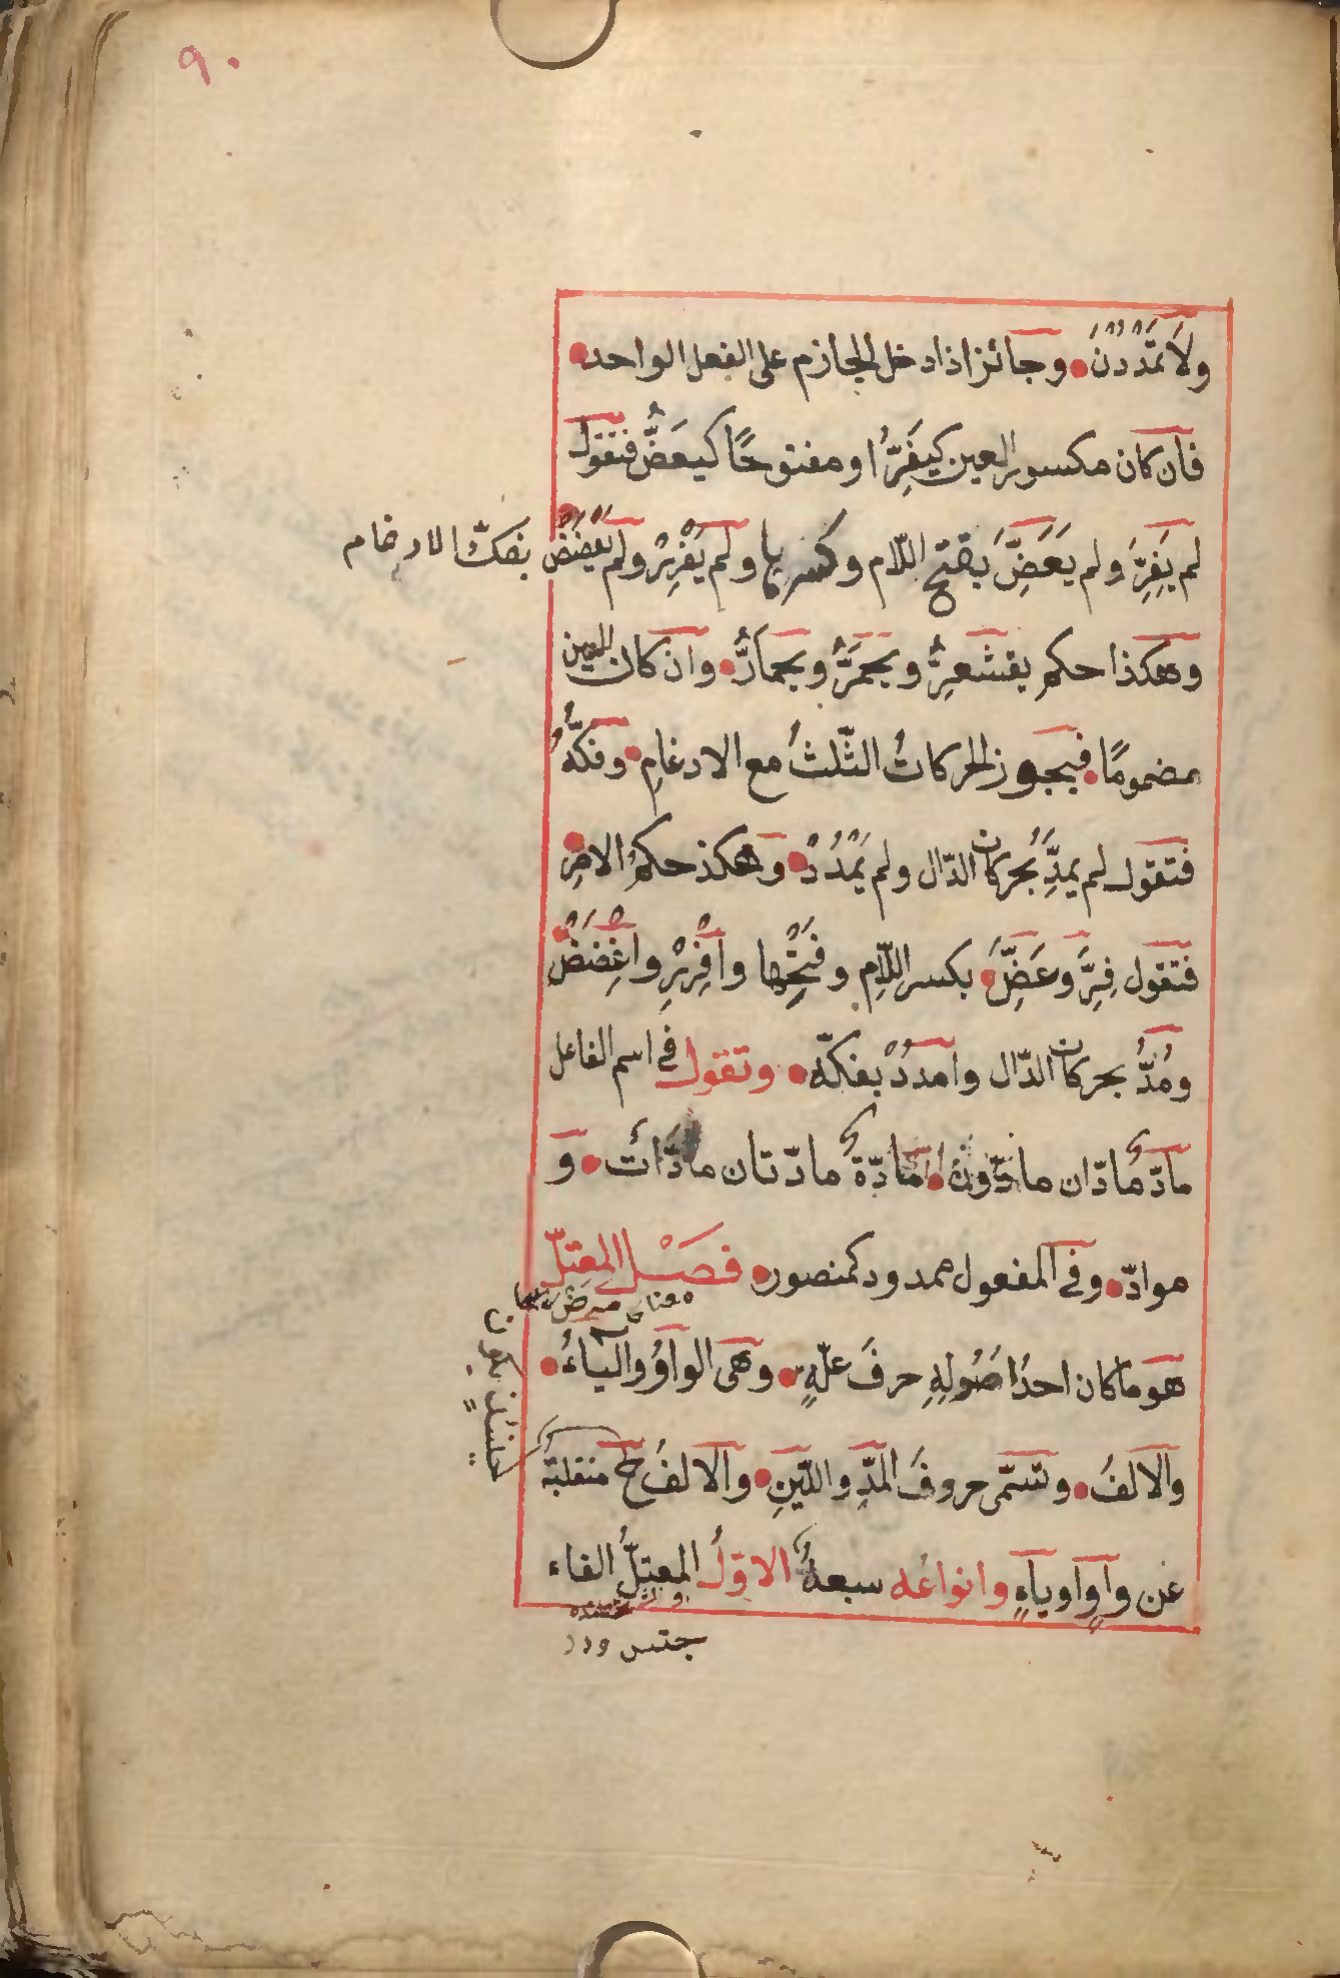 ٩٠
ولَا تَمْدُدْنَ وجائز اذا دخل الجازم على الفعل الواحد
فان كان مكسور العين كيَفِرُّ او مفتوحًا كيَعَضُّ فتقول
لم يَفِرِّ ولم يَعَضِّ بفتح اللّام وكسرها ولم يَفْرِرْ ولم يَعْضَضْ بفكّ الادغام
وهكذا حكم يقشعِرُّ ويحمَرُّ ويحمارُّ وان كان العين
مضمومًا فيجوز الحركاتُ الثّلثُ مع الادغامِ وفكُّهُ
فتقول لم يمدُِّ بحركات الدّال ولم يَمْدُدْ وهكذ حكمُ الامرِ
فتقول فِرَِّ وعَضَِّ بكسر اللّامِ وفَتْحِها وافْرِرْ واعْضَضْ
ومُدُِّ بحركات الدّال وامدُدْ بفكّه وتقول فى اسم الفاعل
مادّ مادّان مادّون مادّة مادّتان مادّات و
موادّ وفى المفعول ممدود كمنصور فصْل المعتلّ
هو ما كان احدُ اصُولِهِ حرفَ علّةٍ وهى الواوُ والياءُ
والالفُ وتسمّى حروفَ المدِّ واللّينِ والالفُ ح منقلبة
عن واوٍ او ياءٍ وانواعُه سبعةٌ الاوّلُ المعتلُّ الفاء